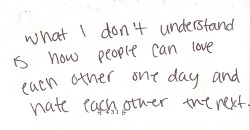 what I don't understand
is how people can love
each other one day and
hate each other the next.